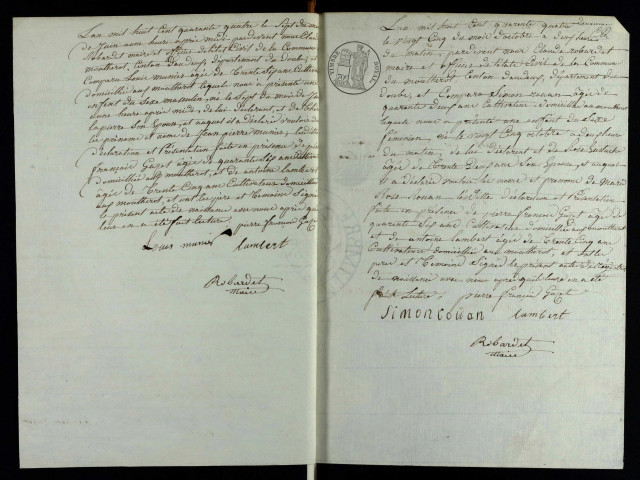 L'an mil huit Cent quarante quatre le Sept du mois
de Juin une heure après midi pardevant nous Claude
Robardet maire et officier de l'état Civil de la Commune
de montherot, Canton d'audeux, département du doubs, et
Comparu Louis munier âgé de Trente Sept ans Cultivateur
domicilié audit montherot lequel nous a présenté une
enfant du Sexe masculin, né le Sept du mois de Juin
une heure après midi, de lui déclarant, et de
lapierre Son Epouse, et auquel il a déclaré vouloir donner
le prénom et nom de Jean pierre munier, ladite
déclaration et Présentation faite en présence de pierre
françois Gazet âgé de quarante Six ans Cultivateur
domicilié audit montherot, et de antoine lambert
âgé de Trente Cinq ans Cultivateur domicilié
audit montherot, et ont les père et Témoins Signé
le présent acte de naissance avec nous après que
leur en a été fait lecture. pierre françois Gazet
Louis munier lambert
Robardet
Maire
L'an mil huit Cent quarante quatre
le vingt Cinq du mois d'octobre à neuf heures
du matin, pardevant nous Claude robardet
maire et officier de l'état Civil de la Commune
de montherot Canton d'audeux, département du
doubs, et Comparu Simon Couan âgé de
quarante neuf ans Cultivateur domicilié audit montherot
lequel nous a présenté une enfant du Sexe
féminin, née le vingt Cinq octobre à deux heures
du matin, de lui déclarant et de Rose
âgée de Trente deux ans Son Epouse, et auquel
il a déclaré vouloir donner le prénom de Marie
Rose Couan, lesdites déclaration et Présentation
faite en présence de pierre françois Gazet âgé de
quarante Six ans Cultivateur domicilié audit montherot
et de antoine lambert âgé de Trente Cinq ans
Cultivateur domicilié audit montherot, et ont les
père et Témoins Signé le présent acte
de naissance avec nous après qu'il leur en a été
fait Lecture, pierre françois Gazet
Simon Couan lambert
Robardet
Maire